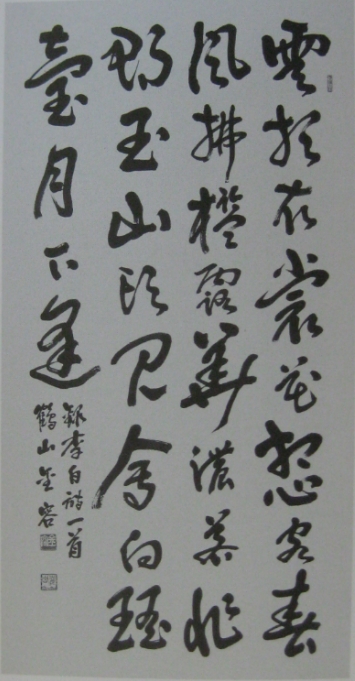 雲想衣裳花想容春
風拂檻露華濃若非
群玉山頭見會向瑤
臺月下逢
録李白詩一首
鶴山金容